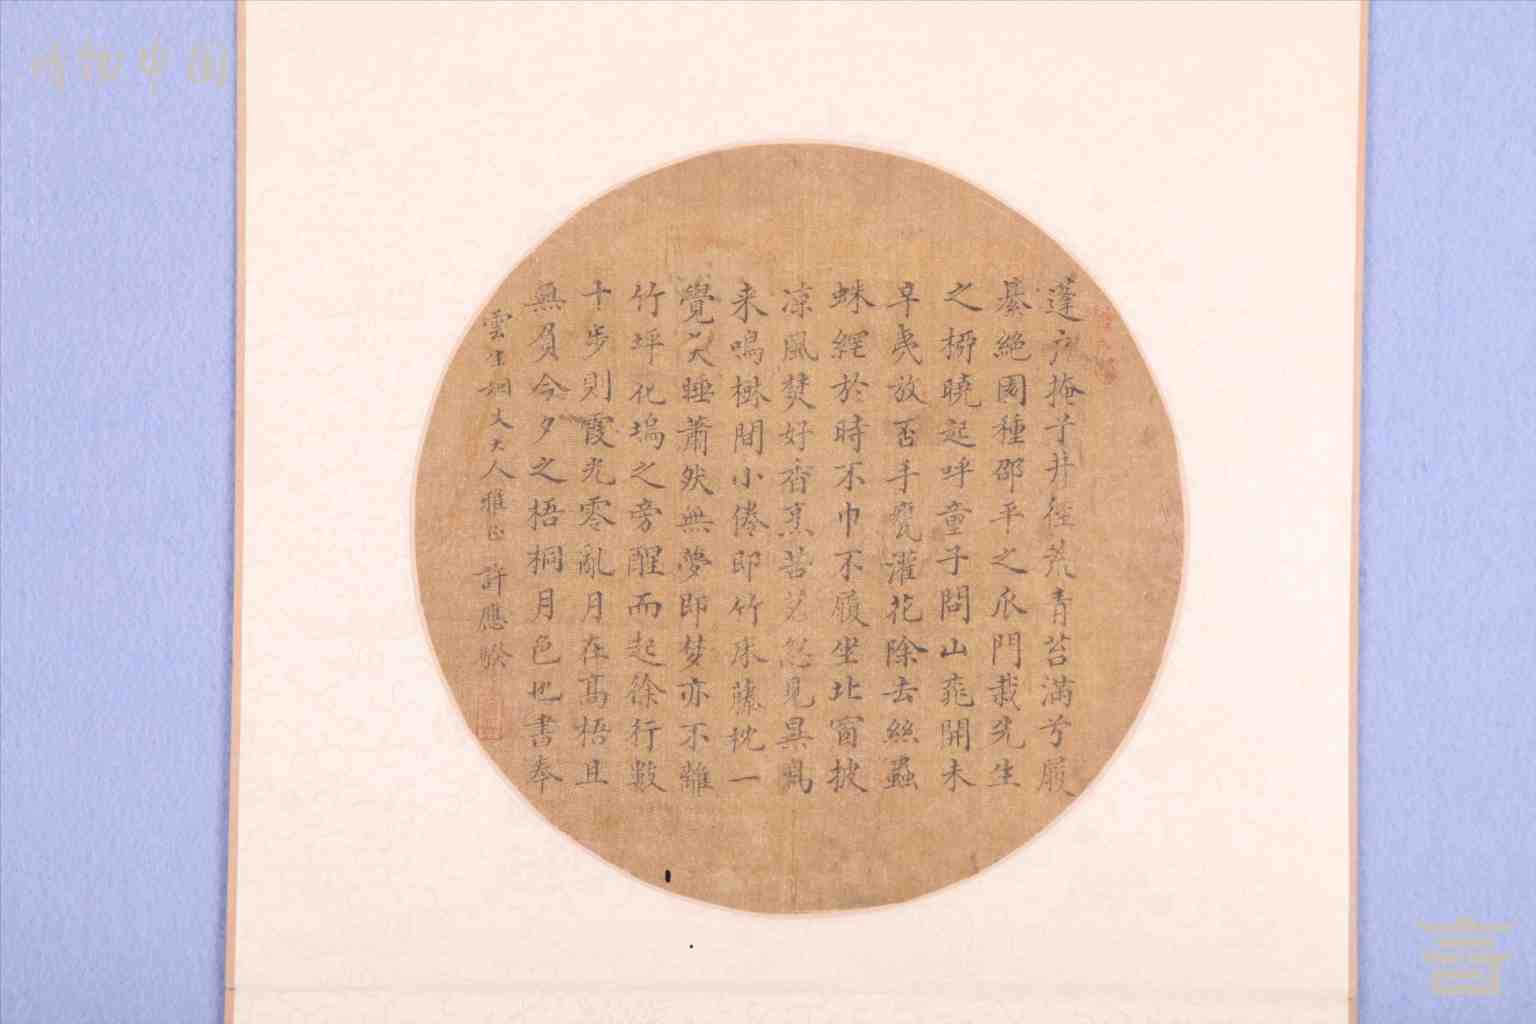 蓬户掩兮井徑荒青苔滿兮履
綦絕園種邵平之瓜門栽先生
之柳曉起呼童子問山桃開未
早曳放否手甕灌花除去絲蟲
蛛網於時不巾不履坐北窗披
凉風焚好香烹苦茗忽見異鳥
来鳴樹間小倦即竹床藤枕一
覺美睡蕭然無夢即梦亦不離
竹坪花塢之旁醒而起徐行數
十步則霞光零亂月在高梧且
無負今夕之梧桐月色也書奉
雲生姻大人雅正 許應騤